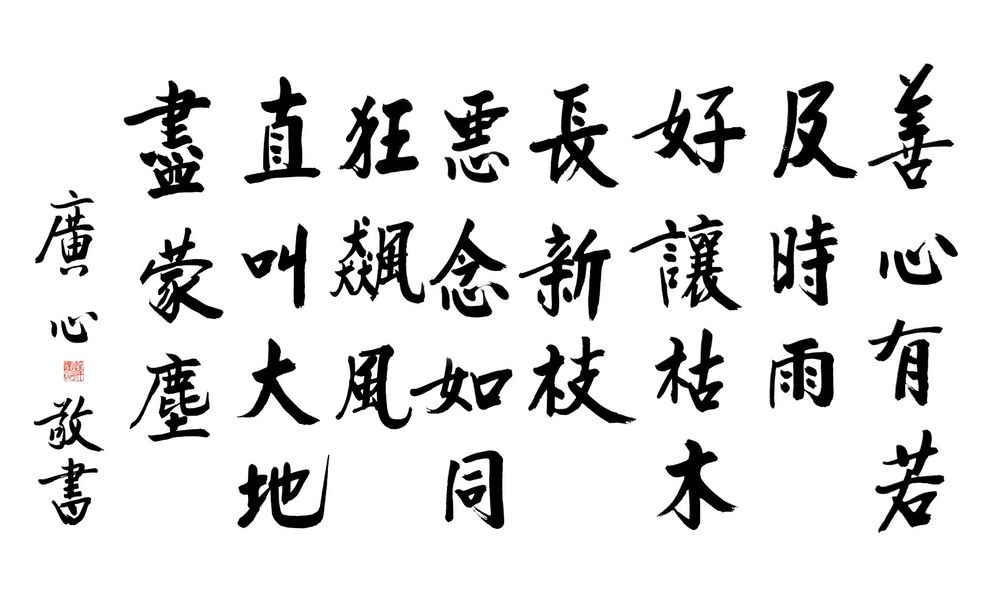 善心有若
及時雨
好讓枯木
長新枝
悪念如同
狂飆風
直叫大地
盡蒙塵
廣心敬書